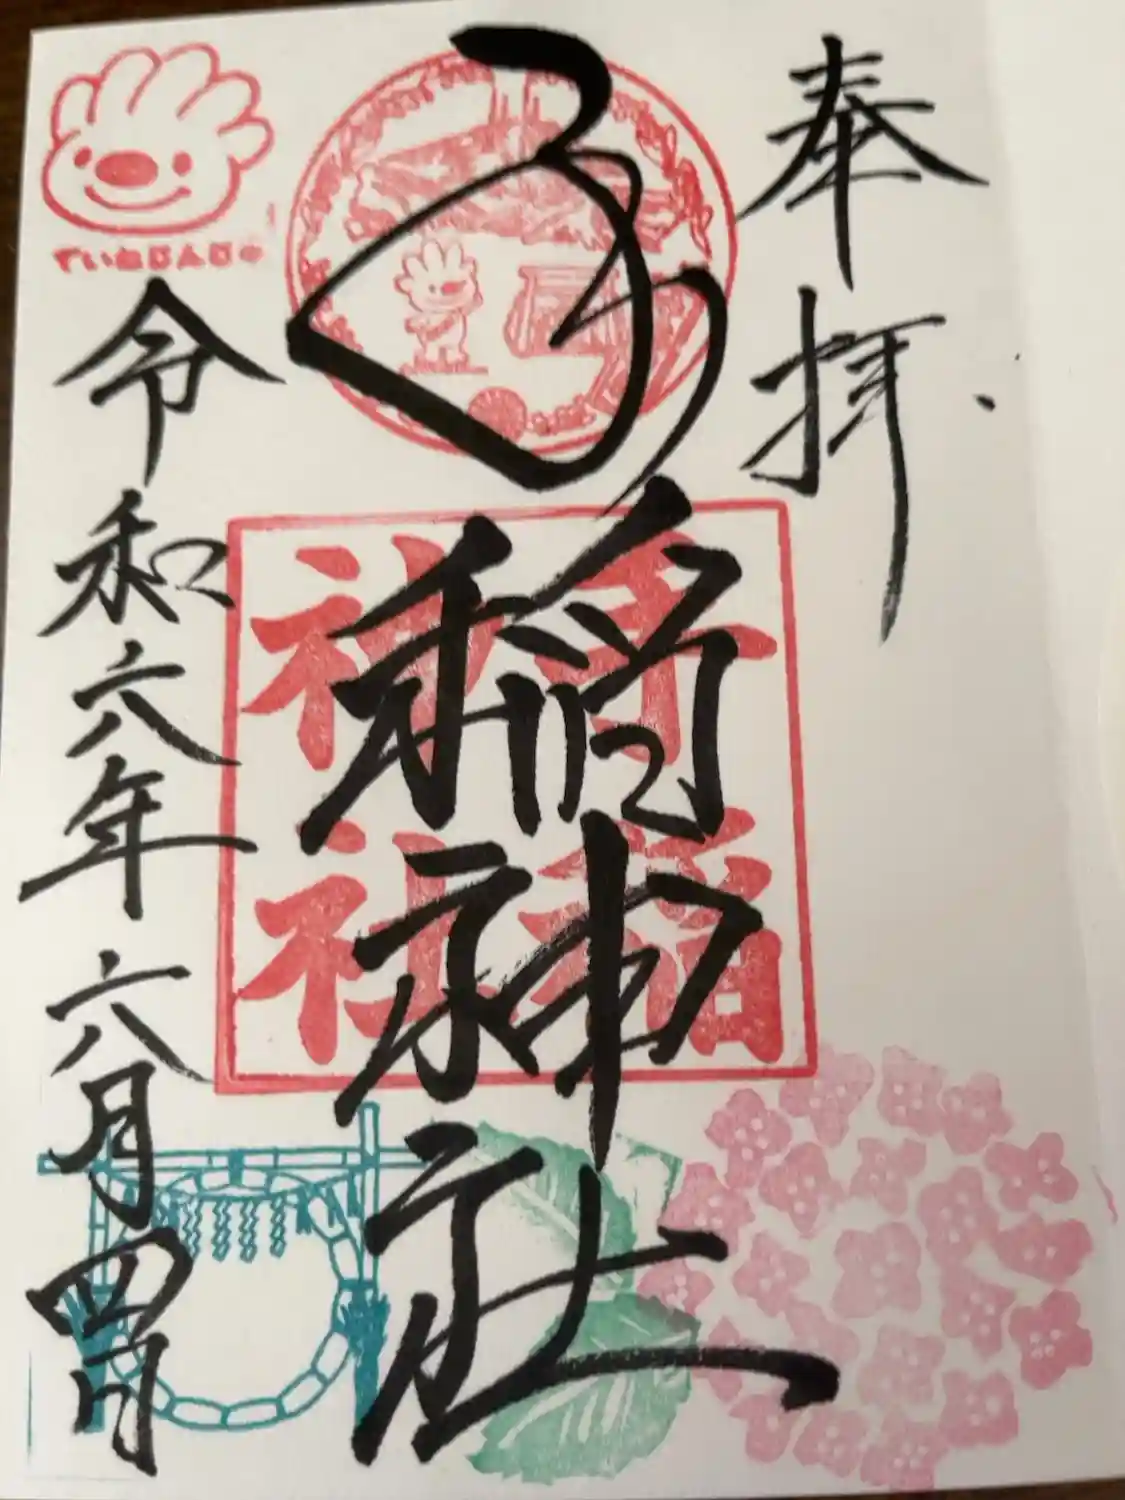 奉拝
手稲神社
手稲
神社
ていねじんじゃ
令和六年六月四日